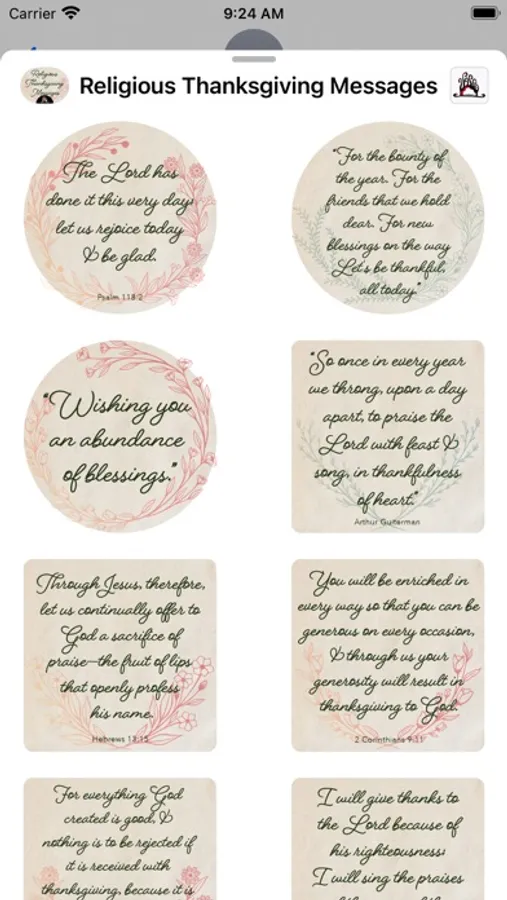 Carrier 9:24 AM
Religious Thanksgiving Messages
The Lord has
done it this very day;
let us rejoice today
& be glad.
Psalm 118:2
"For the bounty of
the year. For the
friends that we hold
dear. For new
blessings on the way
Let's be thankful,
all today."
"Wishing you
an abundance
of blessings."
"So once in every year
we throng, upon a day
apart, to praise the
Lord with feast &
song, in thankfulness
of heart."
Arthur Guiterman
Through Jesus, therefore,
let us continually offer to
God a sacrifice of
praise—the fruit of lips
that openly profess
his name.
Hebrews 13:15
You will be enriched in
every way so that you can be
generous on every occasion,
& through us your
generosity will result in
thanksgiving to God.
2 Corinthians 9:11
For everything God
created is good, &
nothing is to be rejected if
it is received with
thanksgiving, because it is
I will give thanks to
the Lord because of
his righteousness;
I will sing the praises